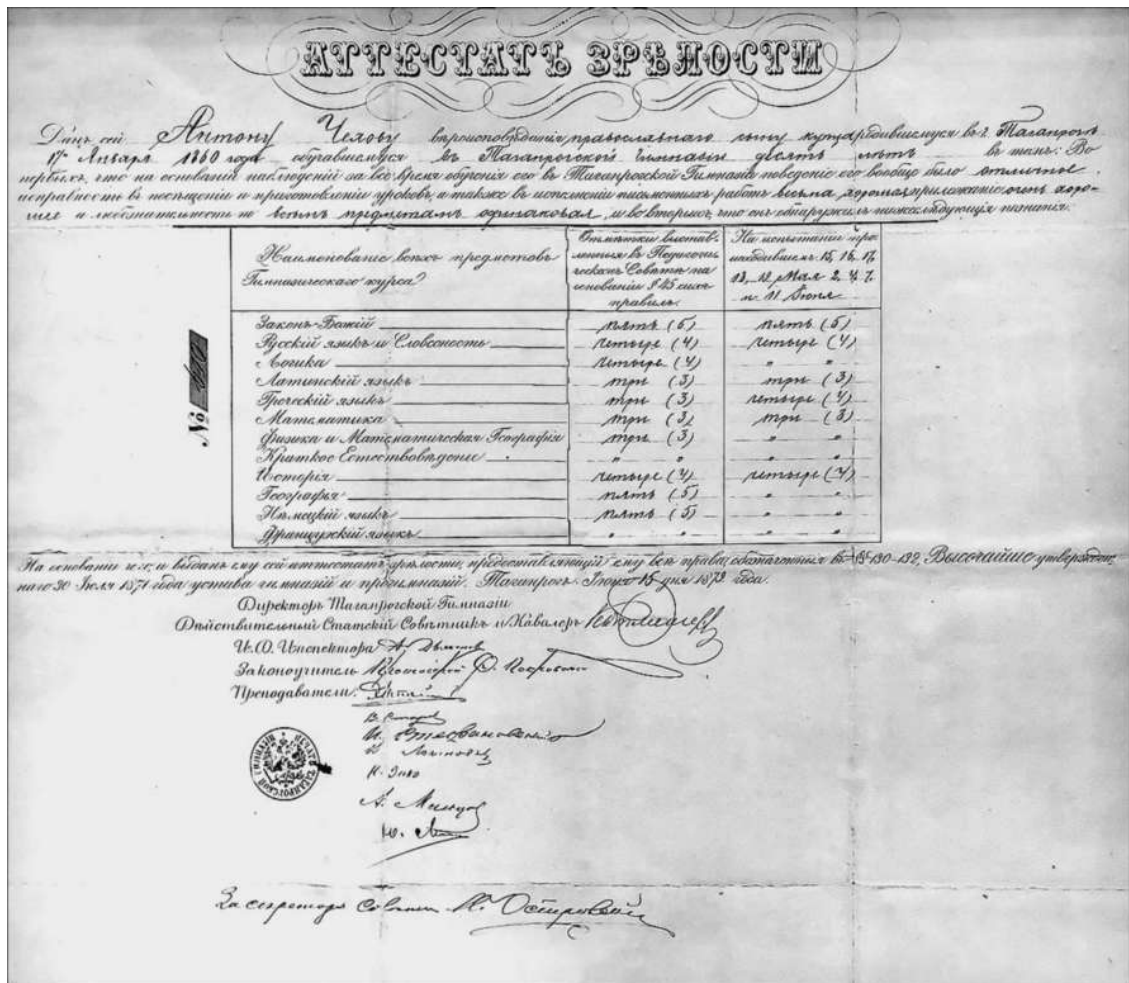 АТТЕСТАТЪ ЗРѢЛОСТИ
Данъ сей Антону Чехову вѣроисповѣданія православнаго, сыну купца, родившемуся въ г. Таганрогѣ
17 Января 1860 года, обучавшемуся въ Таганрогской гимназіи десять лѣтъ въ томъ: Во
первыхъ, что на основаніи наблюденій за все время обученія его въ Таганрогской Гимназіи поведеніе его вообще было отличное,
исправность въ посѣщеніи и приготовленіи уроковъ, а также въ исполненіи письменныхъ работъ весьма хорошая, прилежаніе очень хоро-
шее и любознательность по всѣмъ предметамъ одинаковая, и во вторыхъ, что онъ обнаружилъ нижеслѣдующія познанія:
Наименованіе всѣхъ предметовъ
Гимназическаго курса
Отмѣтки выстав-
ленныя въ Педагоги-
ческомъ Совѣтѣ на
основаніи § 45 сихъ
правилъ.
На испытаніи про-
исходившемъ 15, 16, 17,
18, Мая 2, 4, 7
и 11 Іюня
№
Законъ Божій пять (5) пять (5)
Русскій языкъ и Словесность четыре (4) четыре (4)
Логика четыре (4) „ „
Латинскій языкъ три (3) три (3)
Греческій языкъ три (3) четыре (4)
Математика три (3) три (3)
Физика и Математическая Географія три (3) „ „
Краткое Естествовѣдѣніе „ „ „ „
Исторія четыре (4) четыре (4)
Географія пять (5) „ „
Нѣмецкій языкъ пять (5) „ „
Французскій языкъ „ „ „ „
На основаніи чего, и выданъ ему сей аттестатъ зрѣлости, предоставляющій ему всѣ права, обозначенныя въ §§ 130-132, Высочайше утвержден-
наго 30 Іюля 1871 года устава гимназій и прогимназій. Таганрогъ. Іюня 15 дня 1879 года.
Директоръ Таганрогской Гимназіи
Дѣйствительный Статскій Совѣтникъ и Кавалеръ
И. О. Инспектора А. Дьяконовъ
Законоучитель Протоіерей Ѳ. Покровскій
Преподаватели:
И. Стефановскій
К. Зико
А.
Ю.
За секретаря Совѣта М. Островской
ПЕЧАТЬ ТАГАНРОГСКОЙ ГИМНАЗІИ